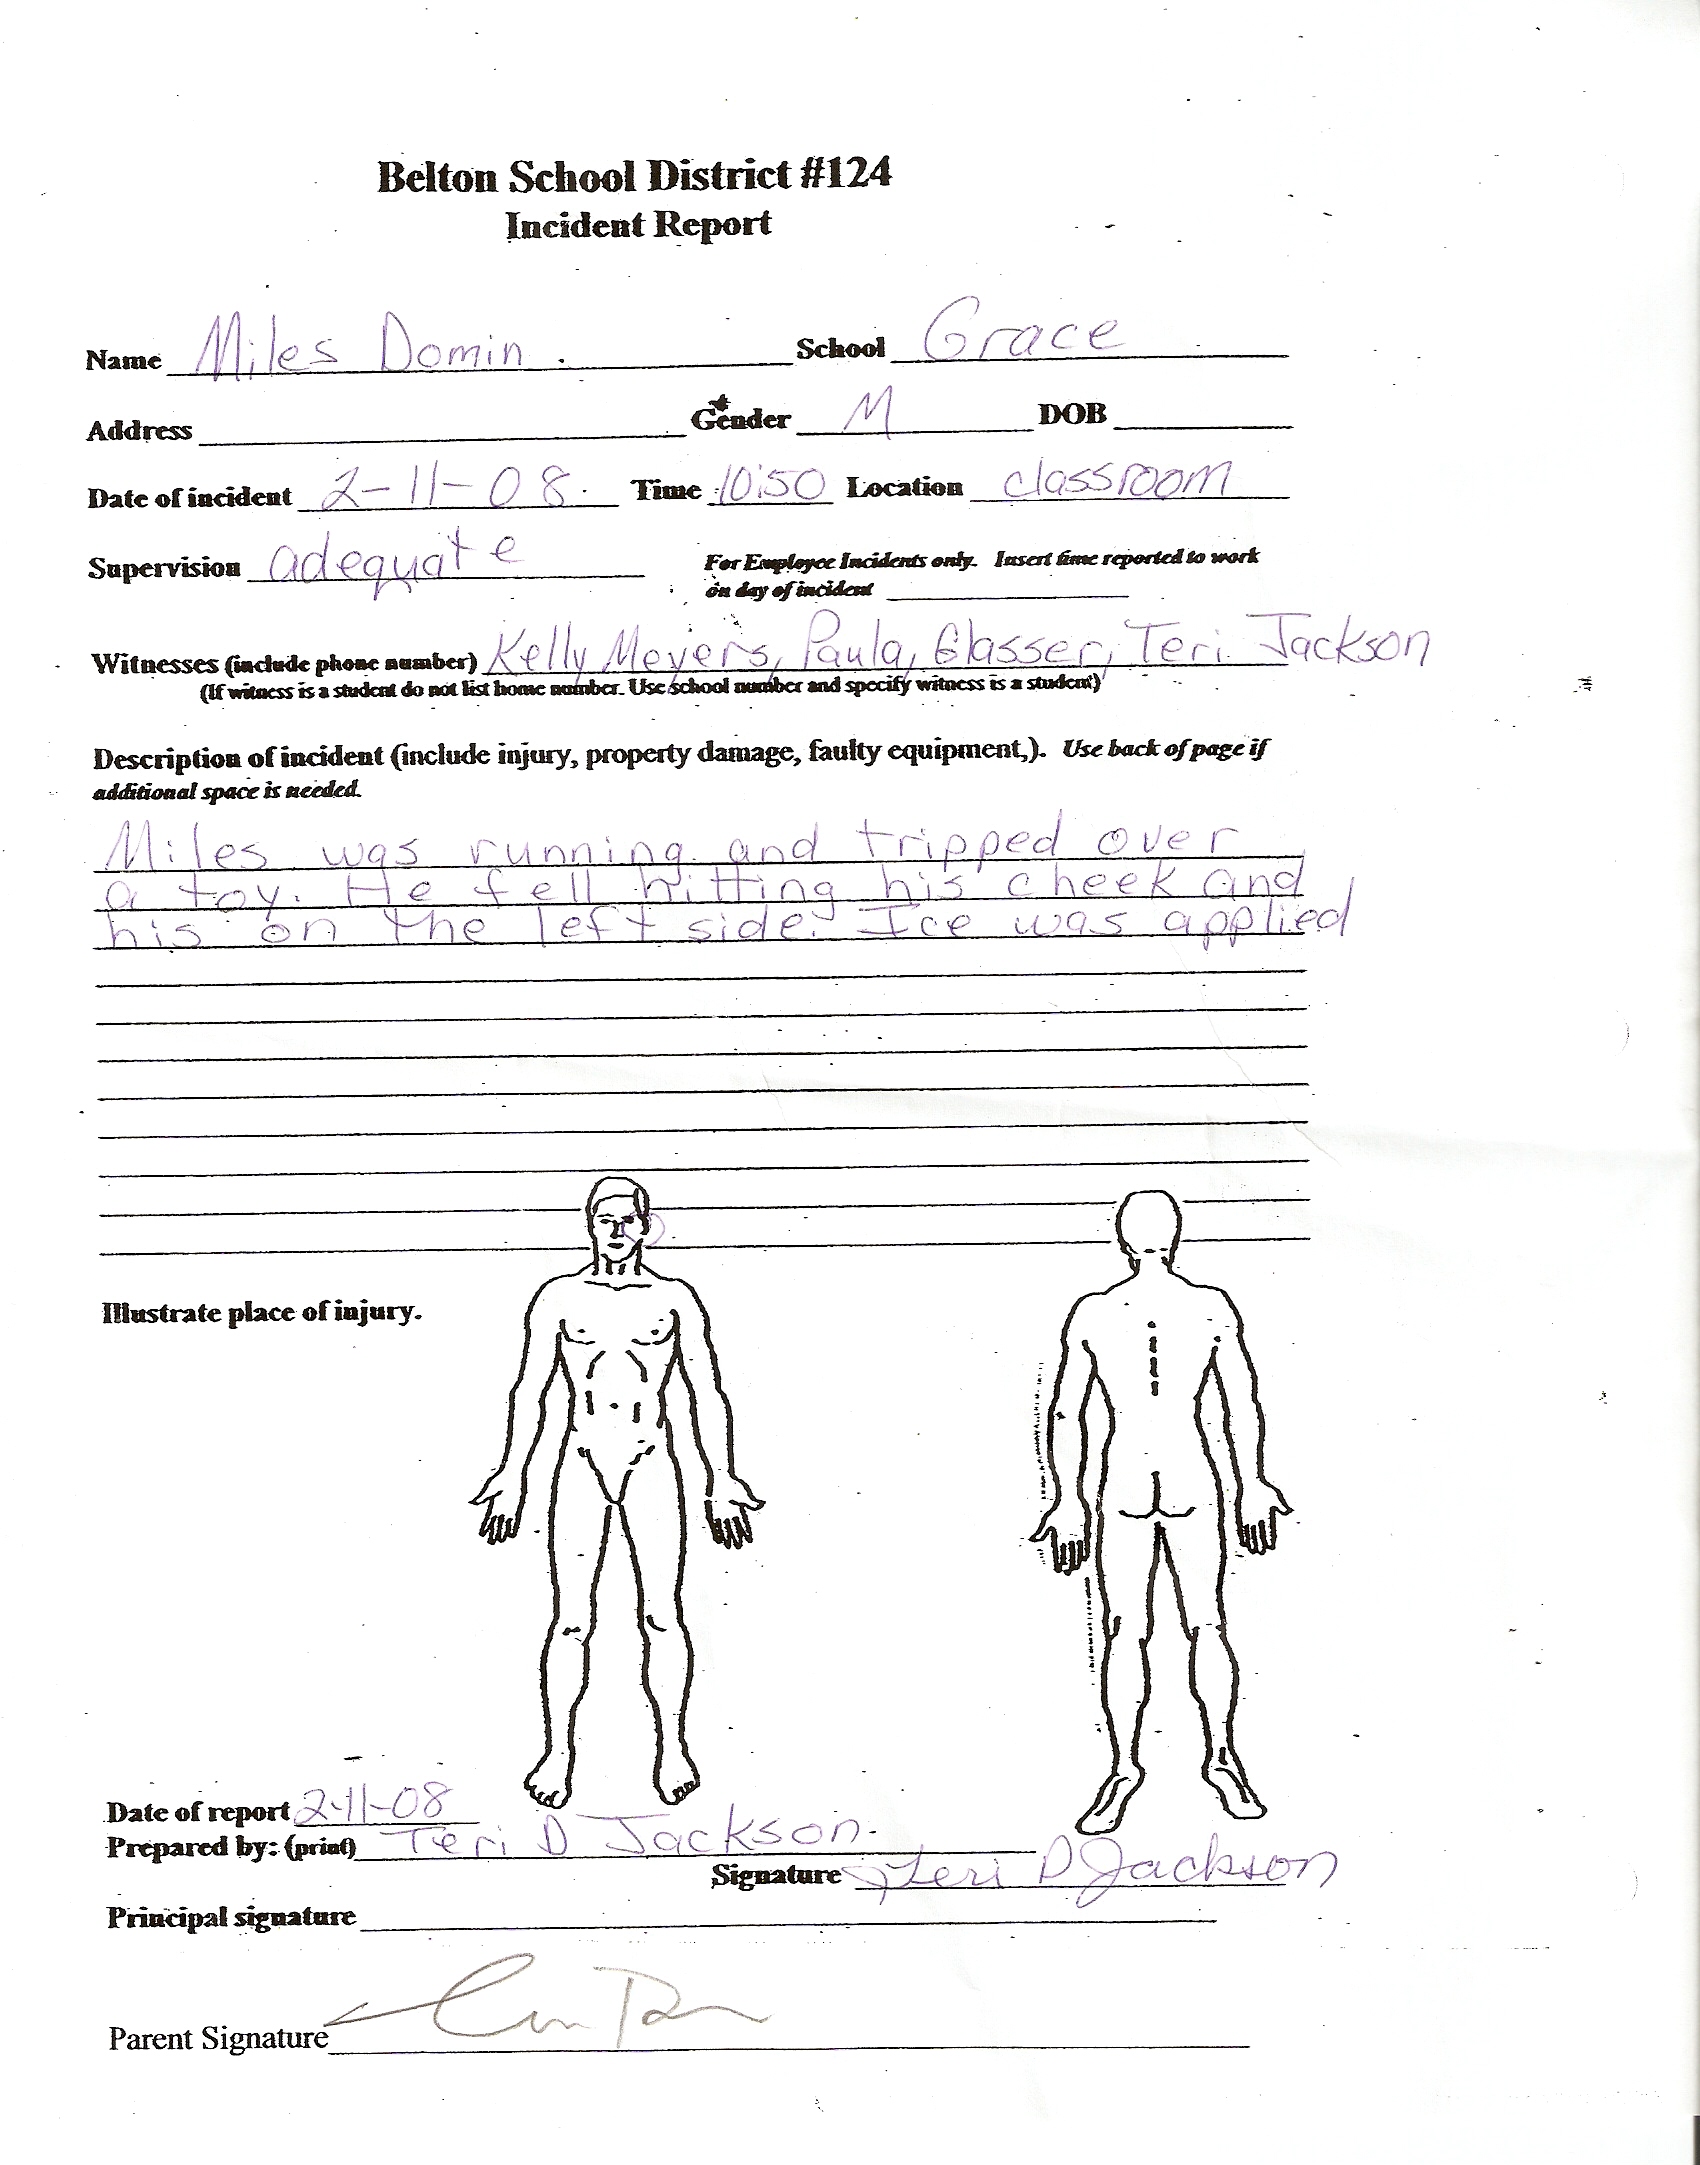 Belton School District #124
Incident Report
Name Miles Domin. School Grace
Address Gender M DOB
Date of incident 2-11-08. Time 10:50 Location classroom
Supervision adequate For Employee Incidents only. Insert time reported to work
on day of incident
Witnesses (include phone number) Kelly Meyers, Paula, Glasser, Teri Jackson
(If witness is a student do not list home number. Use school number and specify witness is a student)
Description of incident (include injury, property damage, faulty equipment,). Use back of page if
additional space is needed.
Miles was running and tripped over
a toy. He fell hitting his cheek and
his on the left side. Ice was applied
Illustrate place of injury.
Date of report 2-11-08
Prepared by: (print) Teri D Jackson.
Signature Teri D Jackson
Principal signature
Parent Signature